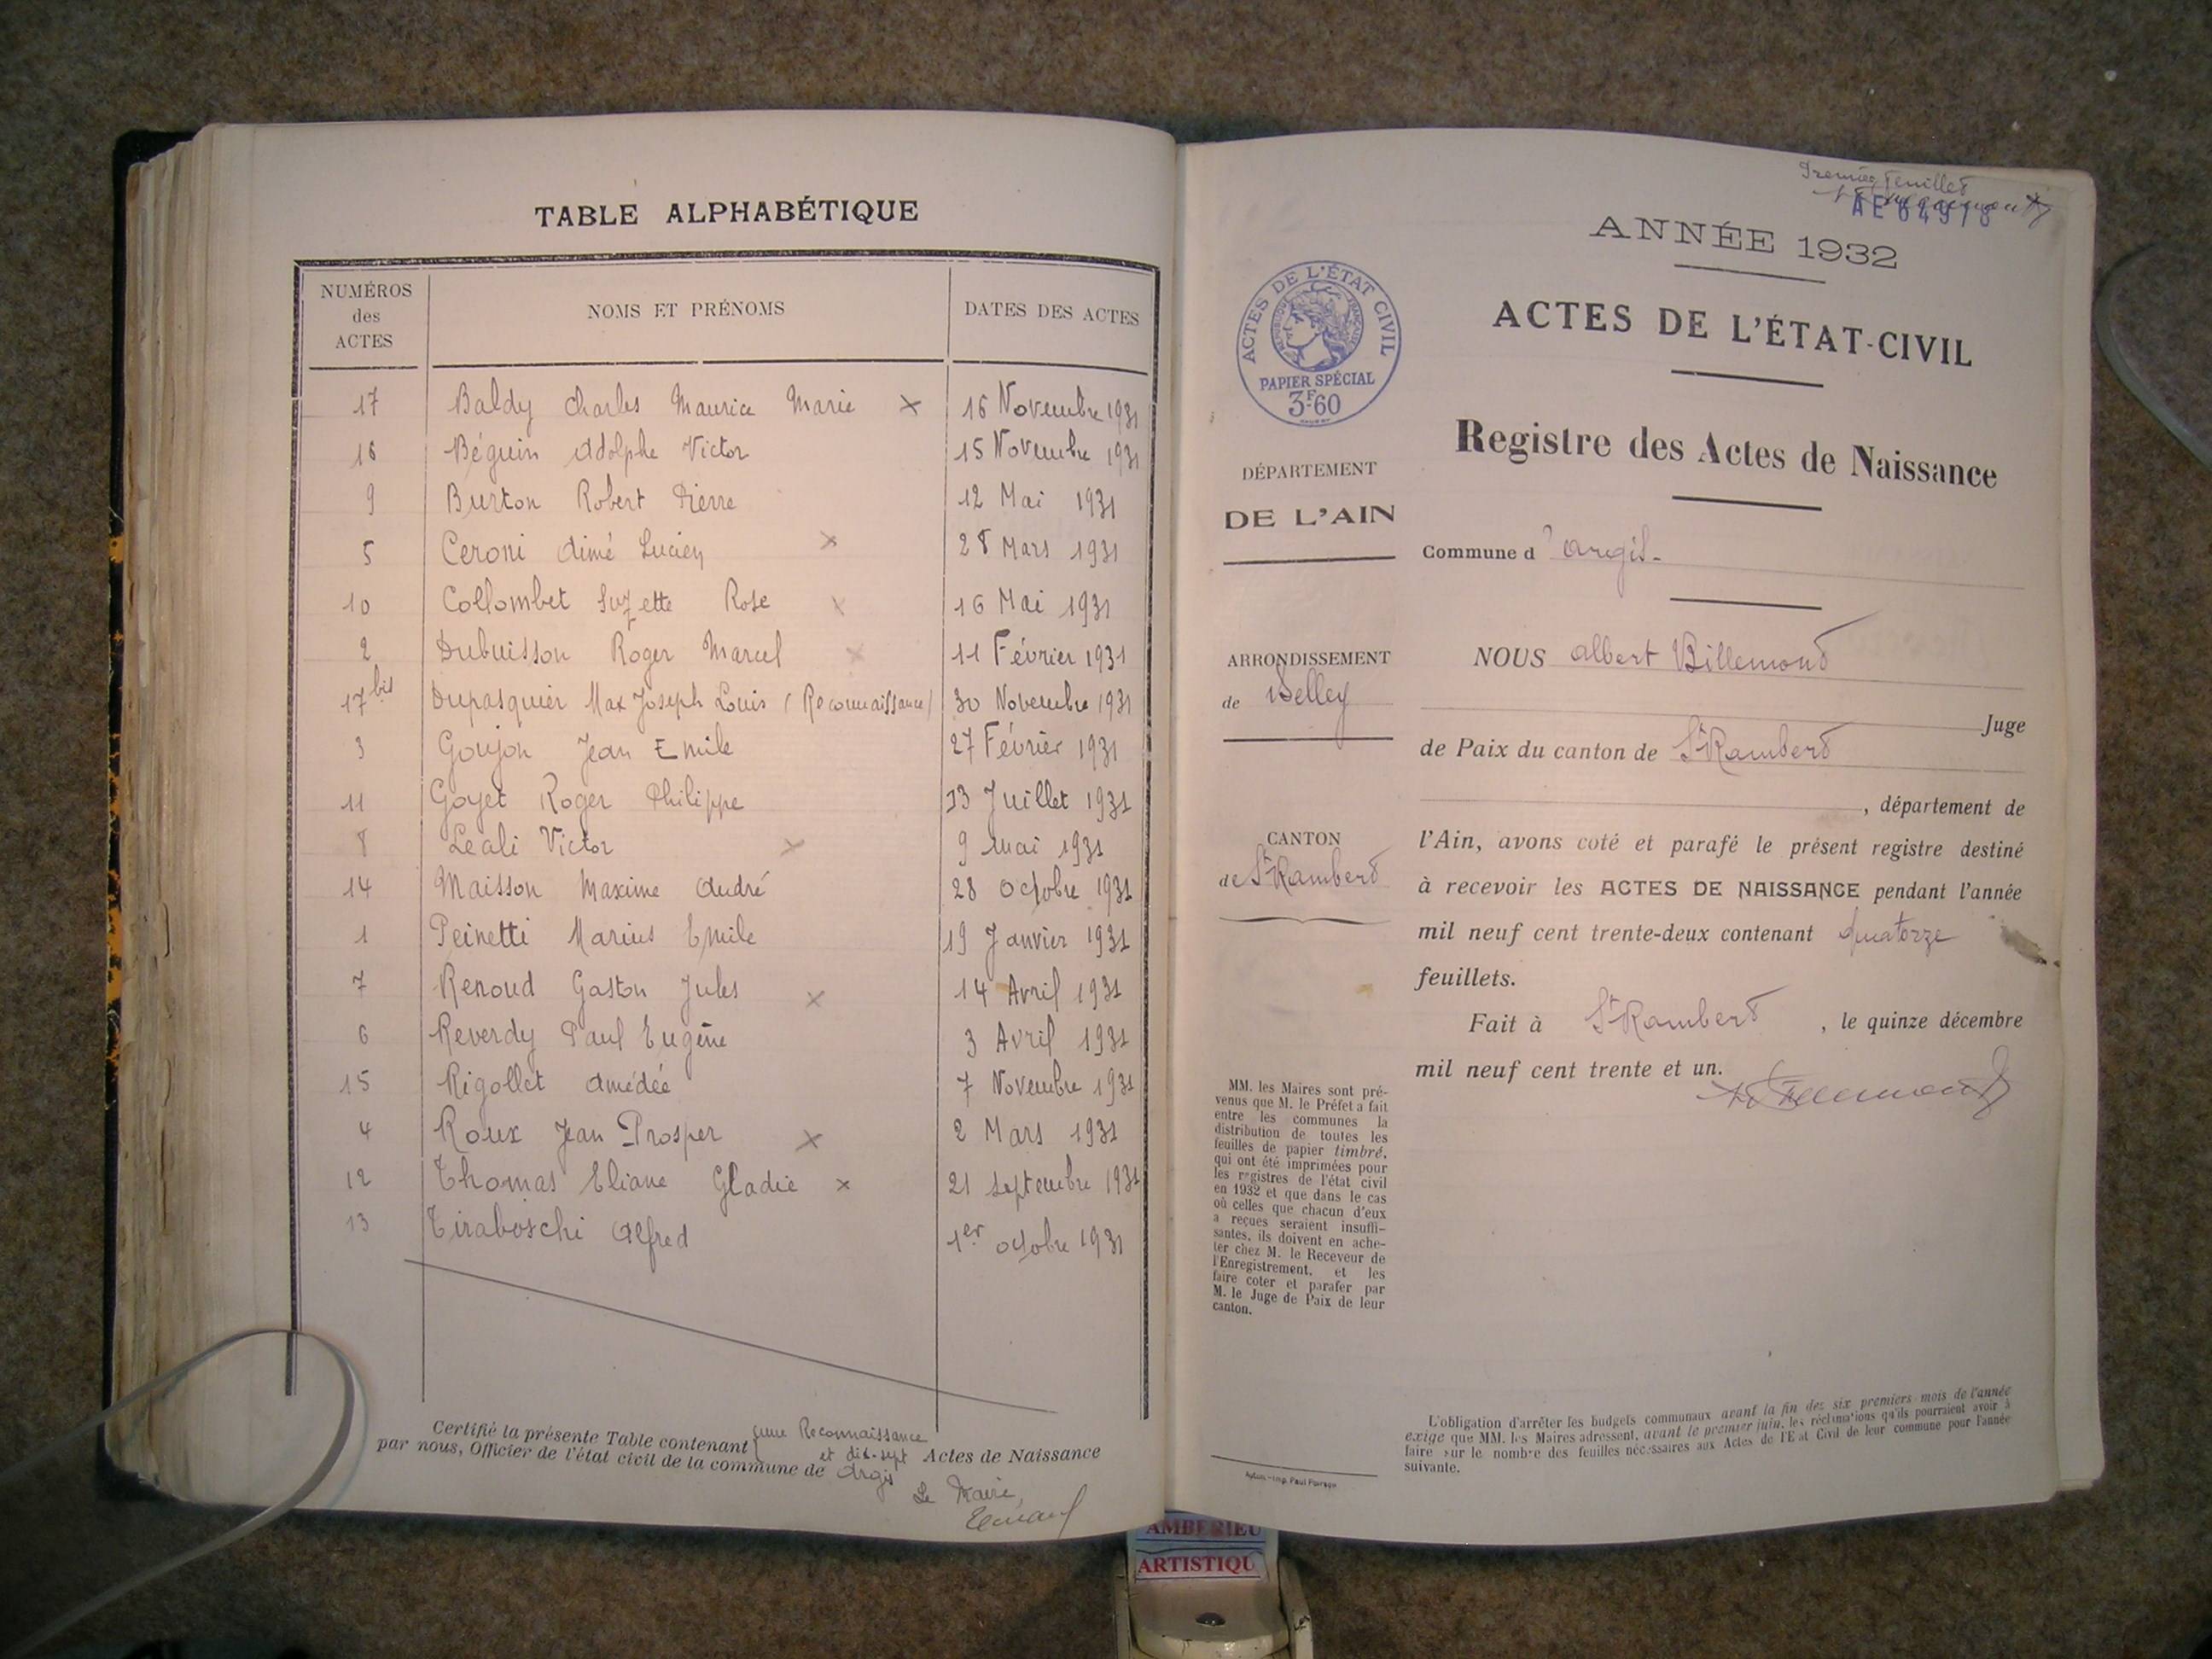 TABLE ALPHABÉTIQUE
NUMÉROS des ACTES NOMS ET PRÉNOMS DATES DES ACTES
17 Baldy Charles Maurice Marie x 16 Novembre 1931
16 Béguin Adolphe Victor 15 Novembre 1931
9 Burton Robert Pierre 12 Mai 1931
5 Ceroni Aimé Lucien x 28 Mars 1931
10 Collombet Suzette Rose x 16 Mai 1931
2 Dubuisson Roger Marcel x 11 Février 1931
17 bis Dupasquier Max Joseph Louis (Reconnaissance) 30 Novembre 1931
3 Goujon Jean Emile 27 Février 1931
11 Goyet Roger Philippe 13 Juillet 1931
8 Leali Victor x 9 Mai 1931
14 Maisson Maxime André 28 Octobre 1931
1 Peinetti Marius Emile 19 Janvier 1931
7 Renoud Gaston Jules x 14 Avril 1931
6 Reverdy Paul Eugène 3 Avril 1931
15 Rigollet Amédée 7 Novembre 1931
4 Roux Jean Prosper x 2 Mars 1931
12 Thomas Eliane Gladie x 21 Septembre 1931
13 Tiraboschi Alfred 1er Octobre 1931
Certifié la présente Table contenant une Reconnaissance et dix-sept Actes de Naissance
par nous, Officier de l'état civil de la commune de Argis
Le Maire,
Premier feuillet
ANNÉE 1932
ACTES DE L'ÉTAT-CIVIL
Registre des Actes de Naissance
ACTES DE L'ÉTAT CIVIL
RÉPUBLIQUE FRANÇAISE
PAPIER SPÉCIAL
3F60
DÉPARTEMENT
DE L'AIN
ARRONDISSEMENT
de Belley
CANTON
de St Rambert
MM. les Maires sont pré-
venus que M. le Préfet a fait
entre les communes la
distribution de toutes les
feuilles de papier timbré,
qui ont été imprimées pour
les registres de l'état civil
en 1932 et que dans le cas
où celles que chacun d'eux
a reçues seraient insuffi-
santes, ils doivent en ache-
ter chez M. le Receveur de
l'Enregistrement, et les
faire coter et parafer par
M. le Juge de Paix de leur
canton.
Commune d'Argis-
NOUS Albert Billemond
Juge
de Paix du canton de St Rambert
, département de
l'Ain, avons coté et parafé le présent registre destiné
à recevoir les ACTES DE NAISSANCE pendant l'année
mil neuf cent trente-deux contenant quatorze
feuillets.
Fait à St Rambert, le quinze décembre
mil neuf cent trente et un.
L'obligation d'arrêter les budgets communaux avant la fin des six premiers mois de l'année
exige que MM. les Maires adressent, avant le premier juin, les réclamations qu'ils pourraient avoir à
faire sur le nombre des feuilles nécessaires aux Actes de l'Etat Civil de leur commune pour l'année
suivante.
AMBERIEU
ARTISTIQU